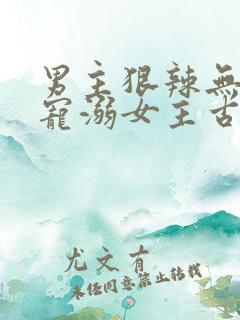 男主狠辣無
寵溺女主古
尤文有
未经同意禁止转载